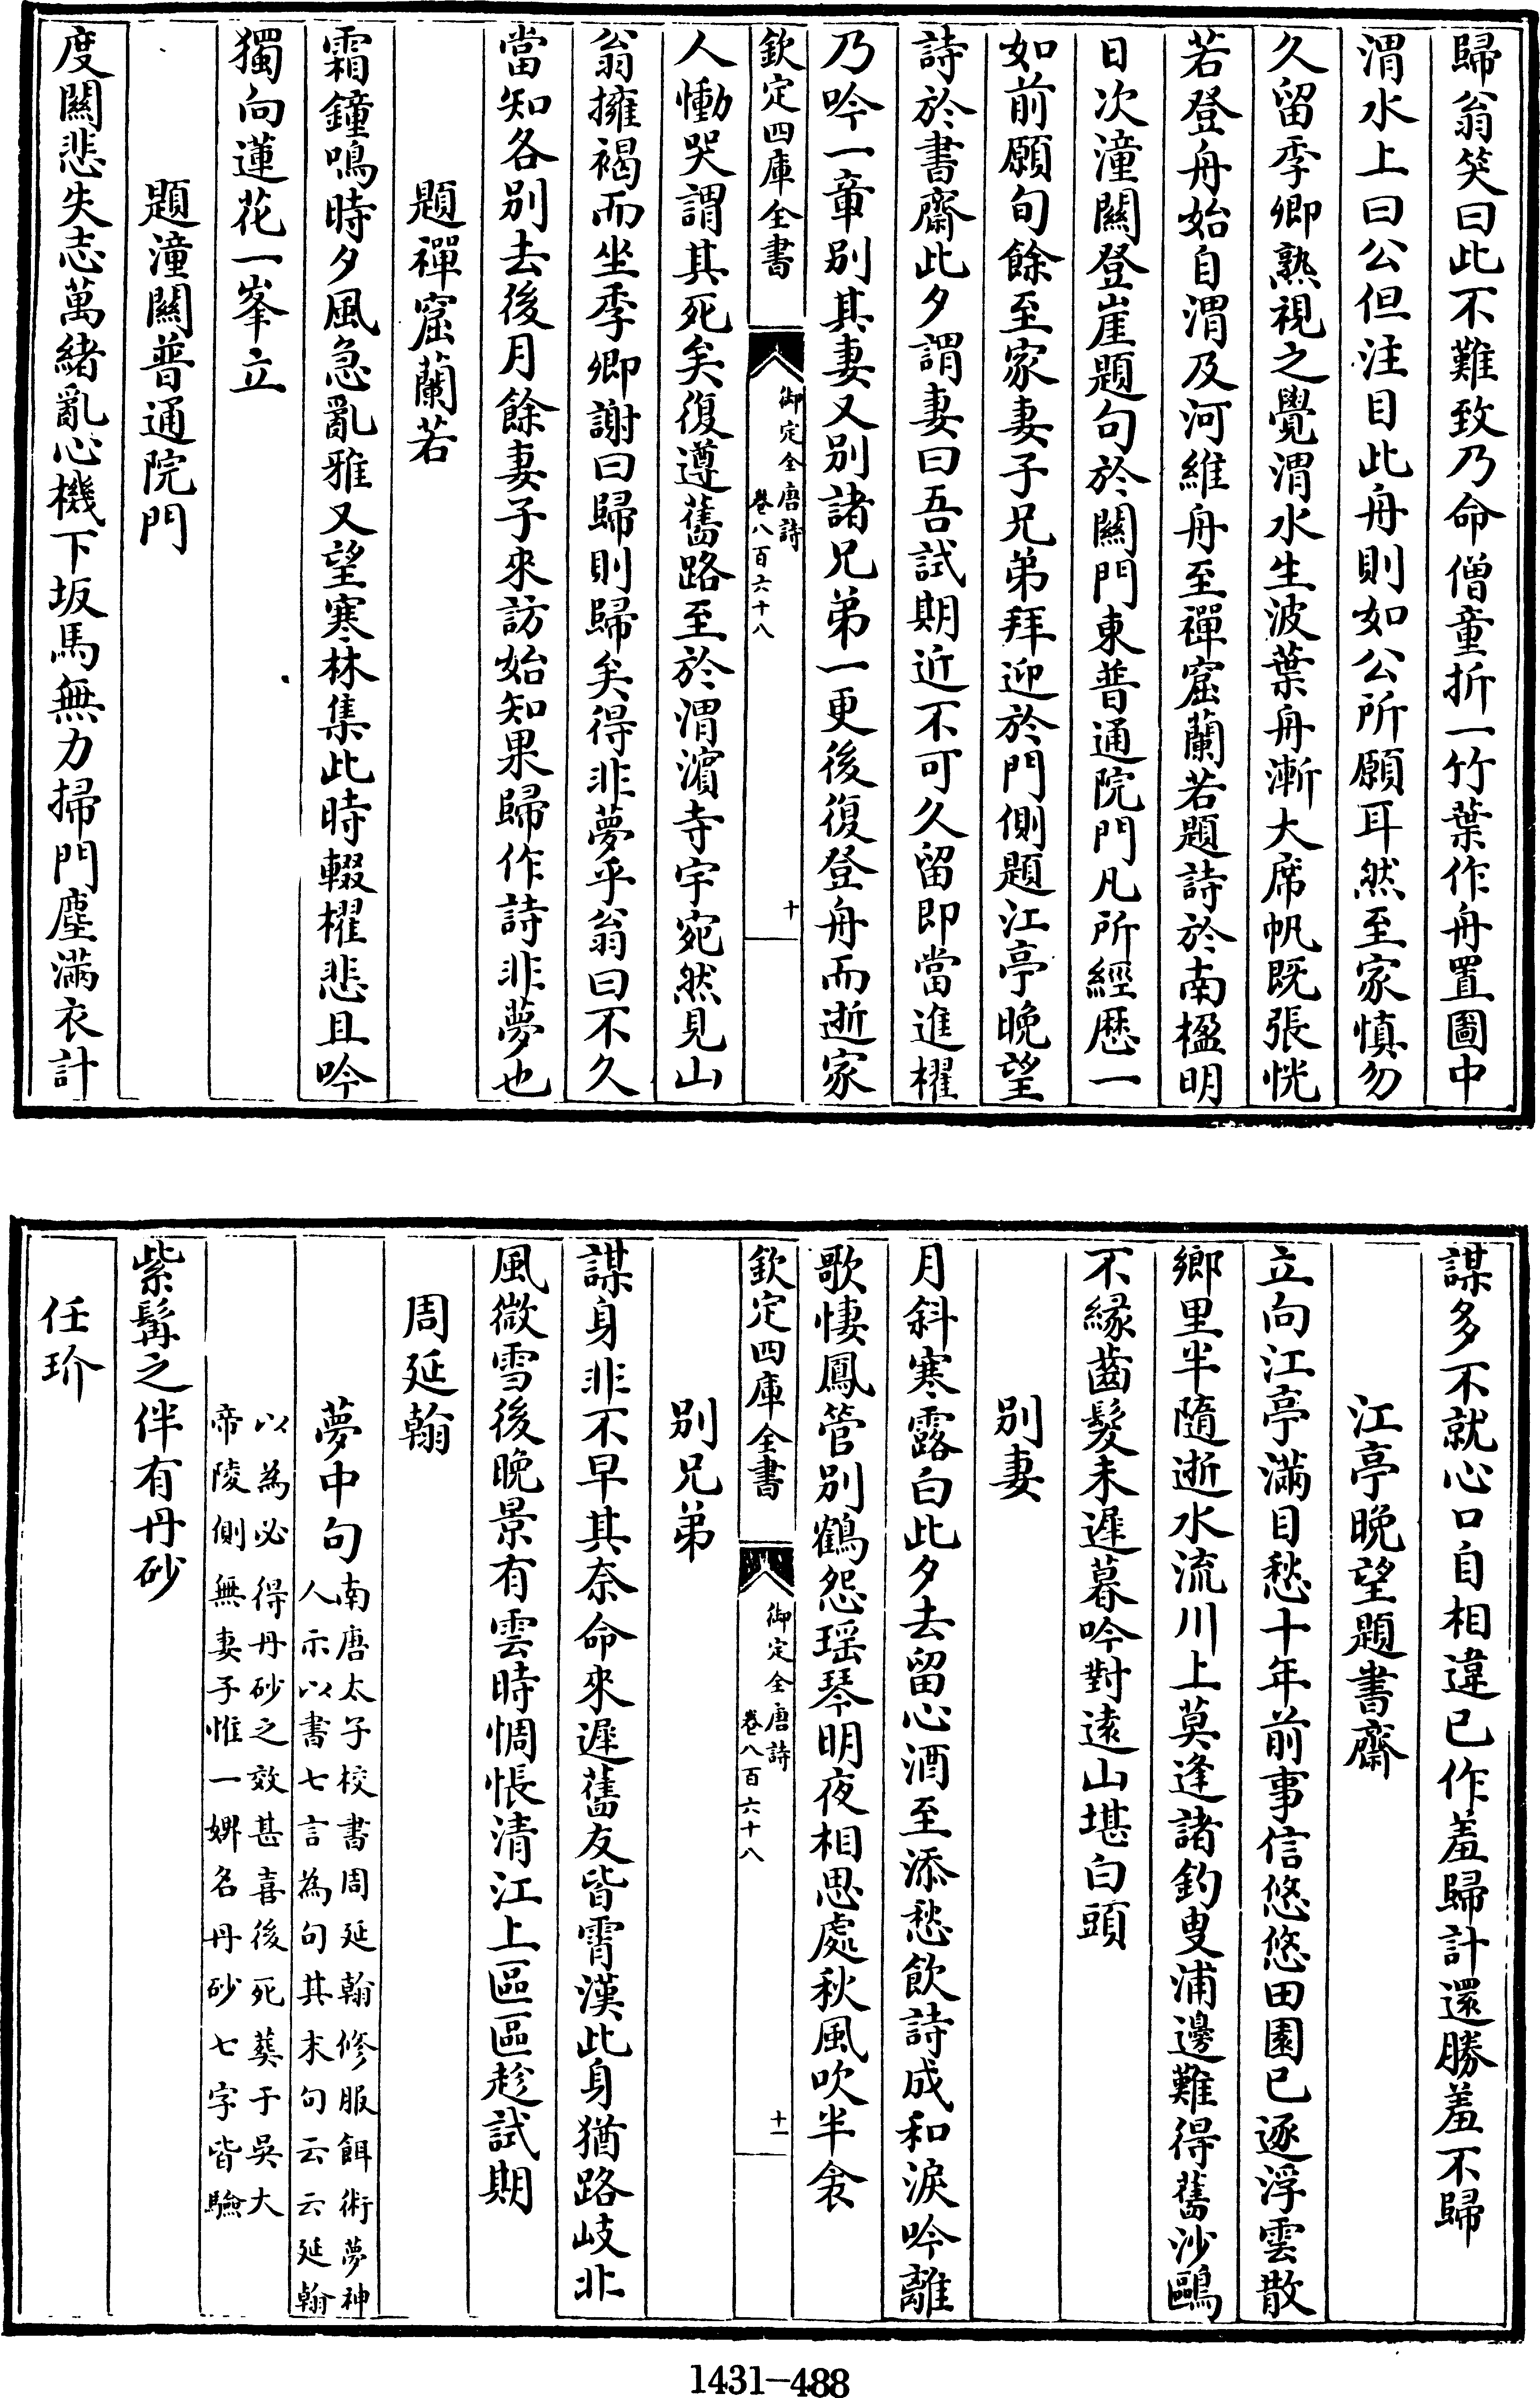 歸翁笑曰此不難致乃命僧童折一竹葉作舟置圖中
渭水上曰公但注目此舟則如公所願耳然至家慎勿
久留季卿熟視之覺渭水生波葉舟漸大席帆既張恍
若登舟始自渭及河維舟至禪窟蘭若題詩於南楹明
日次潼關登崖題句於關門東普通院門凡所經歴一
如前願旬餘至家妻子兄弟拜迎於門側題江亭晚望
詩於書齋此夕謂妻曰吾試期近不可久留即當進櫂
乃吟一章別其妻又別諸兄弟一更後復登舟而逝家
欽定四庫全書
御定全唐詩
卷八百六十八
十
人慟哭謂其死矣復遵舊路至於渭濵寺宇宛然見山
翁擁褐而坐季卿謝曰歸則歸矣得非夢乎翁曰不久
當知各別去後月餘妻子來訪始知果歸作詩非夢也
題禪窟蘭若
霜鐘鳴時夕風急亂雅又望寒林集此時輟櫂悲且吟
獨向蓮花一峯立
題潼關普通院門
度關悲失志萬緒亂心機下坂馬無力掃門塵滿衣計
謀多不就心口自相違已作羞歸計還勝羞不歸
江亭晚望題書齋
立向江亭滿目愁十年前事信悠悠田園已逐浮雲散
鄉里半隨逝水流川上莫逢諸釣叟浦邊難得舊沙鷗
不縁齒髮未遲暮吟對遠山堪白頭
別妻
月斜寒露白此夕去留心酒至添愁飲詩成和淚吟離
歌悽鳳管別鶴怨瑶琴明夜相思處秋風吹半衾
欽定四庫全書
御定全唐詩
卷八百六十八
十一
別兄弟
謀身非不早其奈命來遲舊友皆霄漢此身猶路岐北
風微雪後晚景有雲時惆悵清江上區區趁試期
周延翰
夢中句
南唐太子校書周延翰修服餌術夢神
人示以書七言為句其末句云云延翰
以為必得丹砂之效甚喜後死葬于吳大
帝陵側無妻子惟一婢名丹砂七字皆驗
紫髯之伴有丹砂
任玠
1431-488